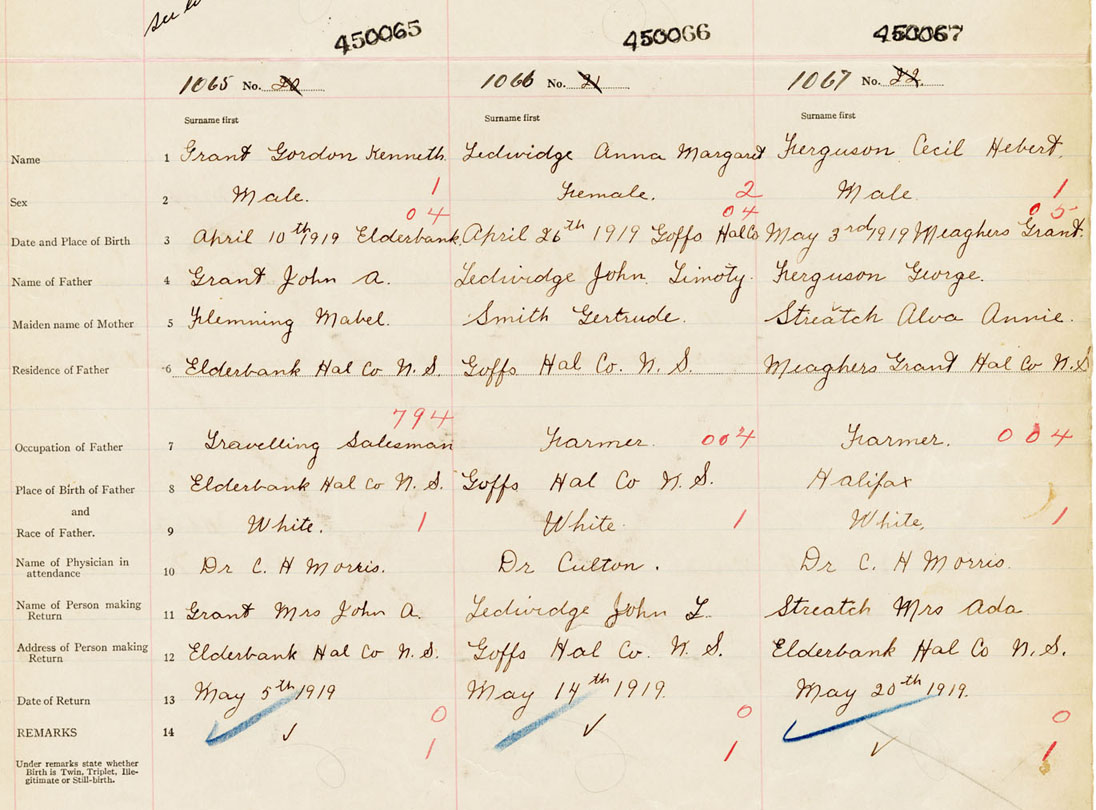 see
450065 450066 450067
1065 No. 20 1066 No. 21 1067 No. 22
Surname first Surname first Surname first
Name 1 Grant Gordon Kenneth Ledwidge Anna Margaret Ferguson Cecil Hebert.
Sex 2 Male. 1 Female. 2 Male 1
04 04 05
Date and Place of Birth 3 April 10th 1919 Elderbank. April 26th 1919 Goffs Hal Co May 3rd 1919 Meaghers Grant.
Name of Father 4 Grant John A. Ledwidge John Timoty. Ferguson George.
Maiden name of Mother 5 Flemming Mabel. Smith Gertrude. Streatch Alva Annie.
Residence of Father 6 Elderbank Hal Co N. S. Goffs Hal Co. N. S. Meaghers Grant Hal Co N.S
794
Occupation of Father 7 Travelling Salesman Farmer. 004 Farmer. 004
Place of Birth of Father 8 Elderbank Hal Co N. S. Goffs Hal Co N. S. Halifax
and
Race of Father. 9 White. 1 White 1 White, 1
Name of Physician in
attendance 10 Dr C. H Morris. Dr Culton. Dr C. H Morris.
Name of Person making
Return 11 Grant Mrs John A. Ledwidge John T. Streatch Mrs Ada
Address of Person making
Return 12 Elderbank Hal Co N. S. Goffs Hal Co. N. S. Elderbank Hal Co N. S.
Date of Return 13 May 5th 1919 May 14th 1919. May 20th 1919.
0 0 0
REMARKS 14 ✓ ✓ ✓
1 1 1
Under remarks state whether
Birth is Twin, Triplet, Ille-
gitimate or Still-birth.